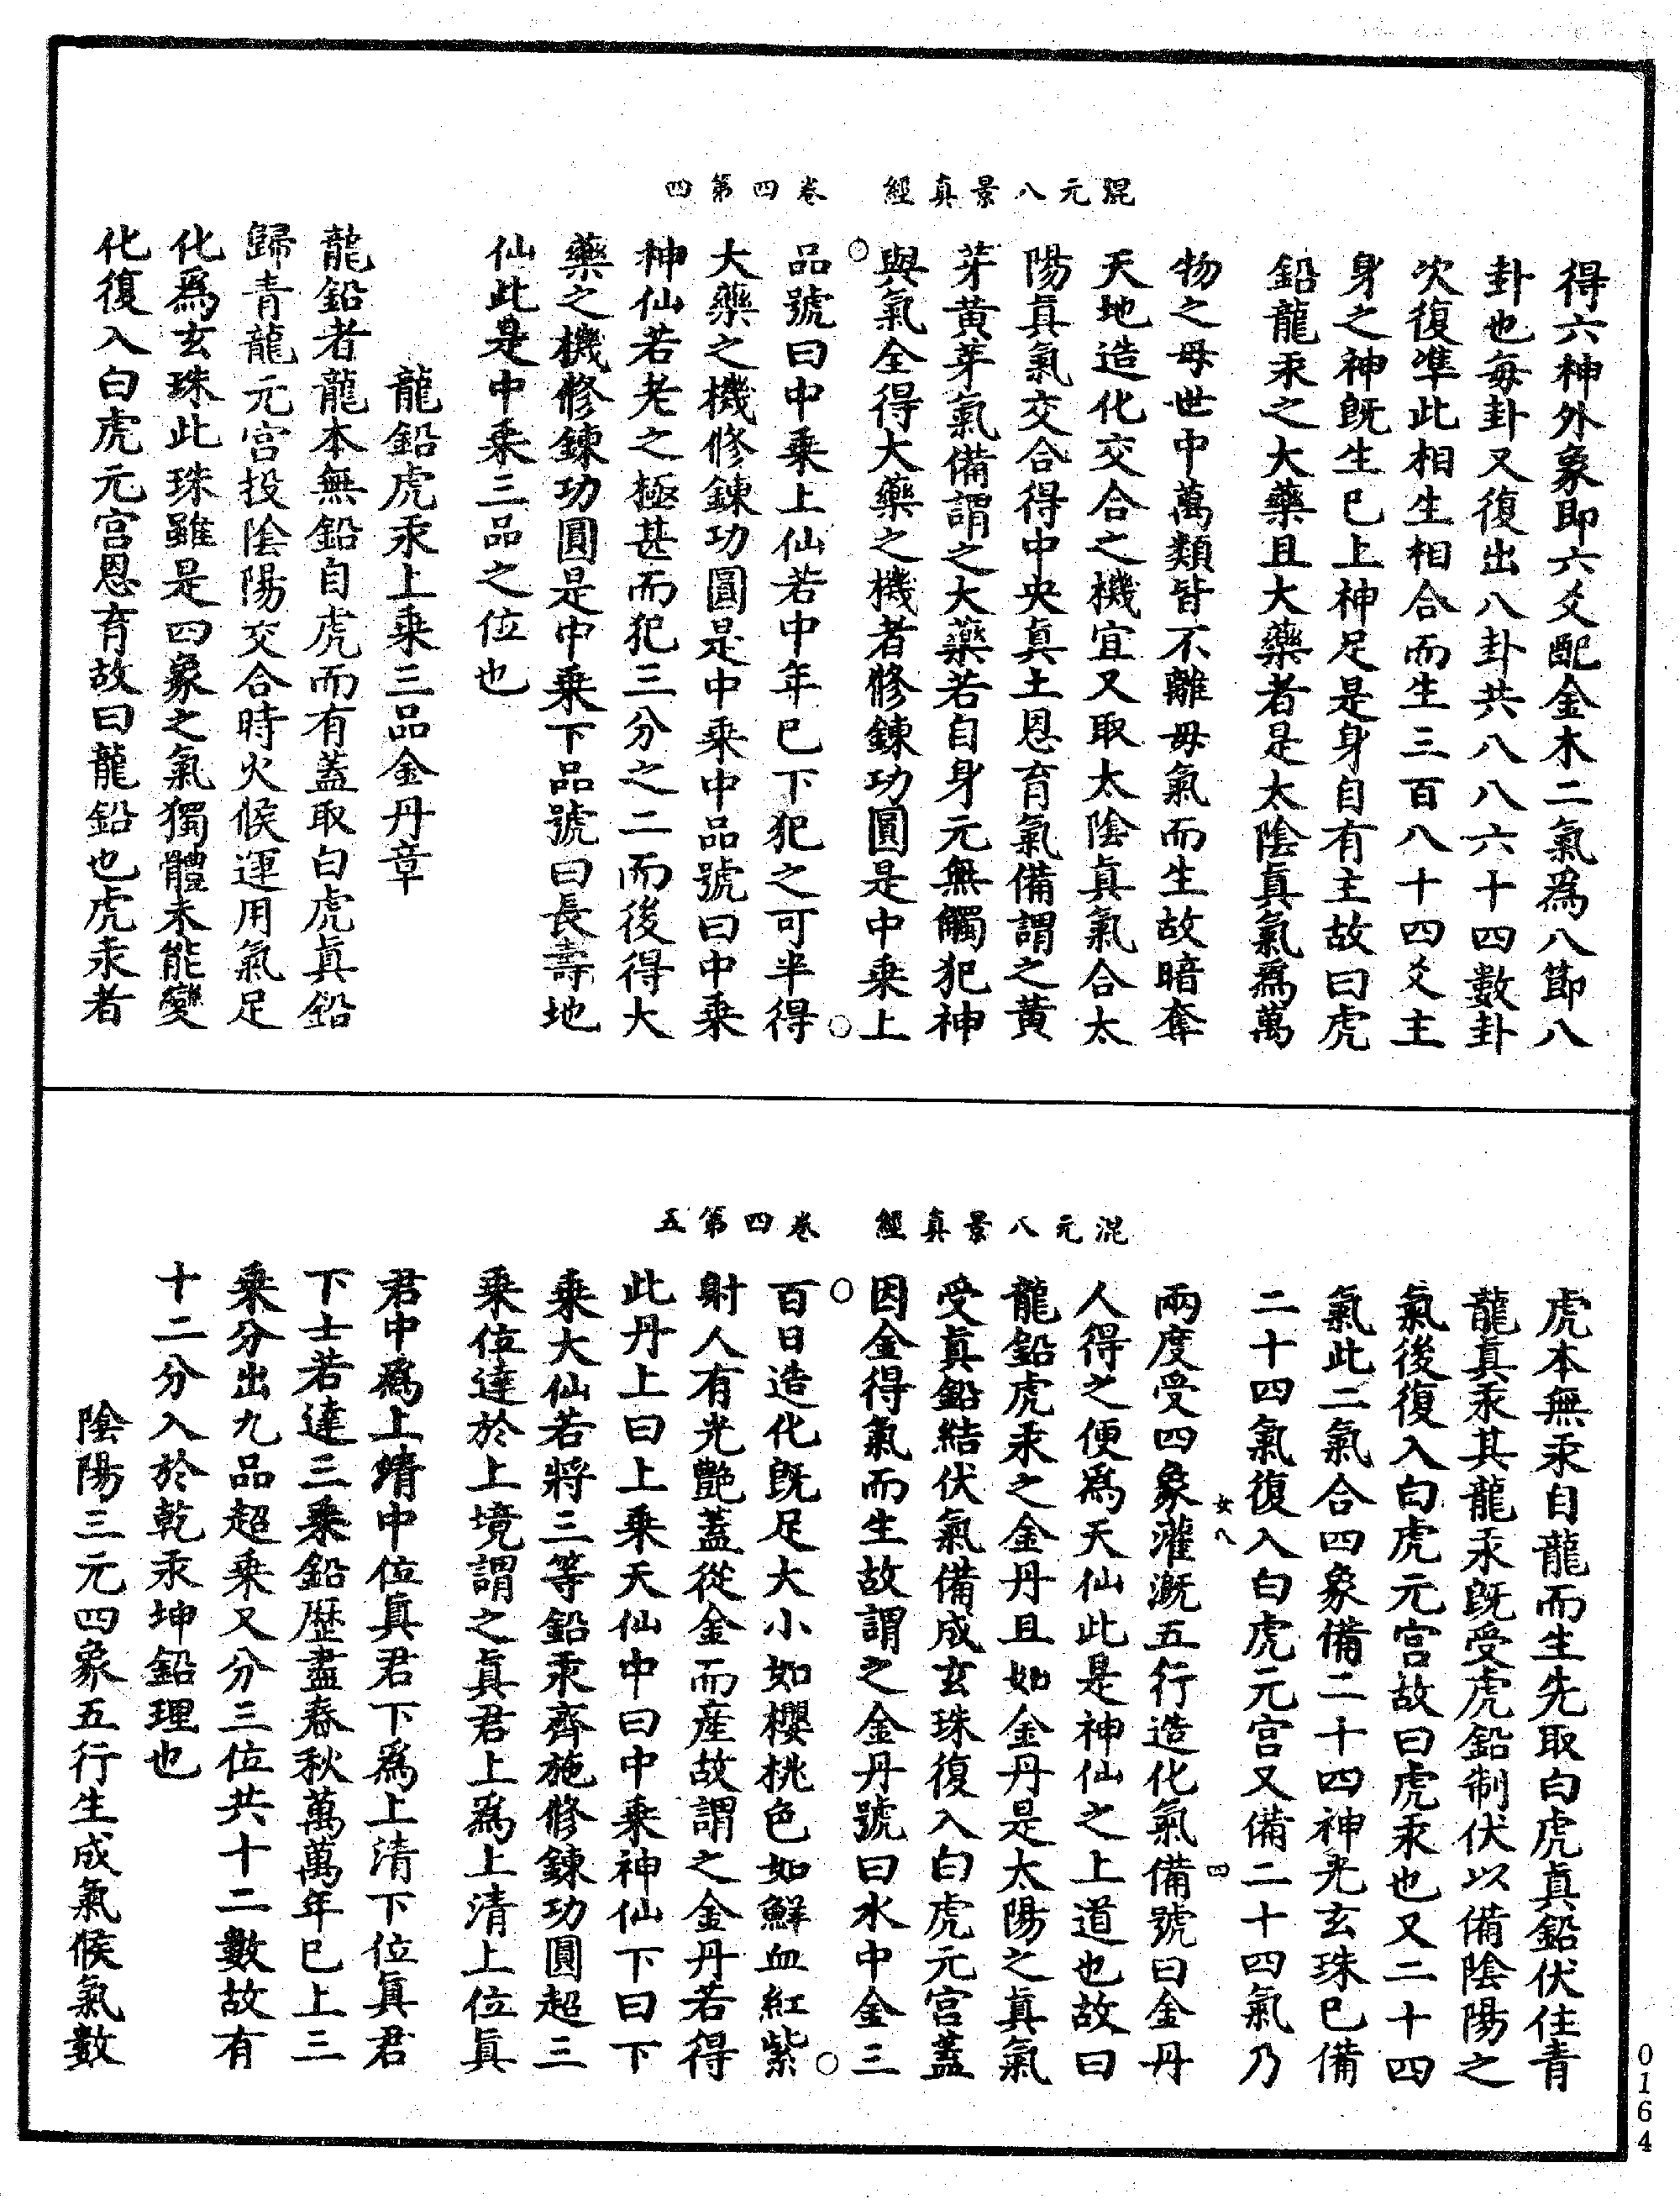 混元八景真經　卷四第四
得六神外象即六爻配金木二氣為八節八
卦也每卦又復出八卦共八八六十四數卦
次復準此相生相合而生三百八十四爻主
身之神既生已上神足是身自有主故曰虎
鉛龍汞之大藥且大藥者是太陰真氣為萬
物之母世中萬類皆不離母氣而生故暗奪
天地造化交合之機宜又取太陰真氣合太
陽真氣交合得中央真土恩育氣備謂之黃
芽黃芽氣備謂之大藥若自身元無觸犯神
與氣全得大藥之機者修鍊功圓是中乘上
品號曰中乘上仙若中年已下犯之可半得
大藥之機修鍊功圓是中乘中品號曰中乘
神仙若老之極甚而犯三分之二而後得大
藥之機修鍊功圓是中乘下品號曰長壽地
仙此是中乘三品之位也
龍鉛虎汞上乘三品金丹章
龍鉛者龍本無鉛自虎而有蓋取白虎真鉛
歸青龍元宮投陰陽交合時火候運用氣足
化為玄珠此珠雖是四象之氣獨體未能變
化復入白虎元宮恩育故曰龍鉛也虎汞者
混元八景真經　卷四第五
虎本無汞自龍而生先取白虎真鉛伏住青
龍真汞其龍汞既受虎鉛制伏以備陰陽之
氣後復入白虎元宮故曰虎汞也又二十四
氣此二氣合四象備二十四神光玄珠已備
二十四氣復入白虎元宮又備二十四氣乃
女八　四
兩度受四象灌溉五行造化氣備號曰金丹
人得之便為天仙此是神仙之上道也故曰
龍鉛虎汞之金丹且如金丹是太陽之真氣
受真鉛結伏氣備成玄珠復入白虎元宮蓋
因金得氣而生故謂之金丹號曰水中金三
百日造化既足大小如櫻桃色如鮮血紅紫
射人有光艷蓋從金而產故謂之金丹若得
此丹上曰上乘天仙中曰中乘神仙下曰下
乘大仙若將三等鉛汞齊施修鍊功圓超三
乘位達於上境謂之真君上為上清上位真
君中為上清中位真君下為上清下位真君
下士若達三乘鉛歷盡春秋萬萬年已上三
乘分出九品超乘又分三位共十二數故有
十二分入於乾汞坤鉛理也
陰陽三元四象五行生成氣候氣數
0164